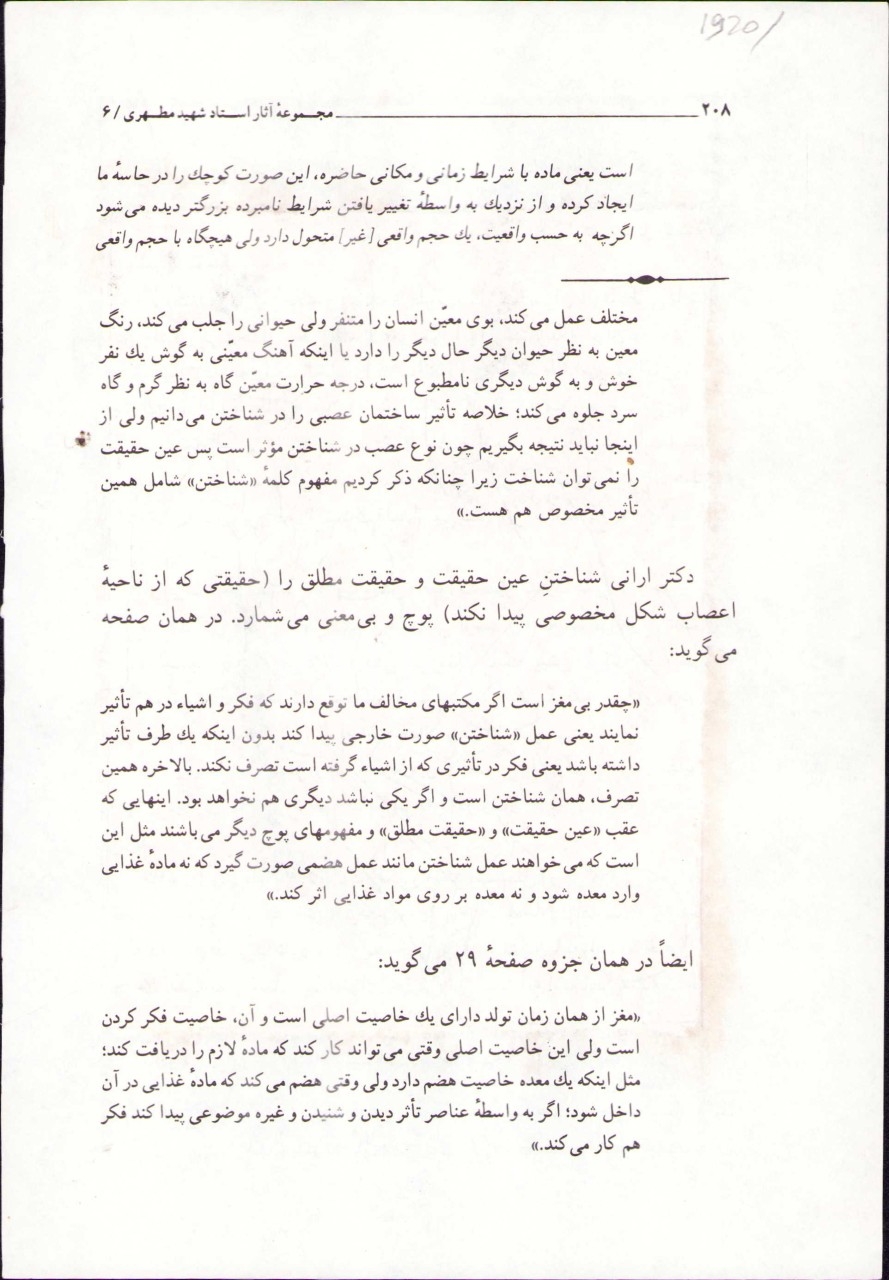 1920/
۲۰۸ مجـمـوعهٔ آثار اسـتاد شهید مطـهـری / ۶
است یعنی ماده با شرایط زمانی و مکانی حاضره، این صورت کوچك را در حاسهٔ ما
ایجاد کرده و از نزدیك به واسطهٔ تغییر یافتن شرایط نامبرده بزرگتر دیده می‌شود
اگرچه به حسب واقعیت، یك حجم واقعی [غیر] متحول دارد ولی هیچگاه با حجم واقعی
مختلف عمل می‌کند، بوی معیّن انسان را متنفر ولی حیوانی را جلب می‌کند، رنگ
معین به نظر حیوان دیگر حال دیگر را دارد یا اینکه آهنگ معیّنی به گوش یك نفر
خوش و به گوش دیگری نامطبوع است، درجه حرارت معیّن گاه به نظر گرم و گاه
سرد جلوه می‌کند؛ خلاصه تأثیر ساختمان عصبی را در شناختن می‌دانیم ولی از
اینجا نباید نتیجه بگیریم چون نوع عصب در شناختن مؤثر است پس عین حقیقت
را نمی‌توان شناخت زیرا چنانکه ذکر کردیم مفهوم کلمهٔ «شناختن» شامل همین
تأثیر مخصوص هم هست.»
دکتر ارانی شناختنِ عین حقیقت و حقیقت مطلق را (حقیقتی که از ناحیهٔ
اعصاب شکل مخصوصی پیدا نکند) پوچ و بی‌معنی می‌شمارد. در همان صفحه
می‌گوید:
«چقدر بی‌مغز است اگر مکتبهای مخالف ما توقع دارند که فکر و اشیاء در هم تأثیر
نمایند یعنی عمل «شناختن» صورت خارجی پیدا کند بدون اینکه یك طرف تأثیر
داشته باشد یعنی فکر در تأثیری که از اشیاء گرفته است تصرف نکند. بالاخره همین
تصرف، همان شناختن است و اگر یکی نباشد دیگری هم نخواهد بود. اینهایی که
عقب «عین حقیقت» و «حقیقت مطلق» و مفهومهای پوچ دیگر می‌باشند مثل این
است که می‌خواهند عمل شناختن مانند عمل هضمی صورت گیرد که نه مادهٔ غذایی
وارد معده شود و نه معده بر روی مواد غذایی اثر کند.»
ایضاً در همان جزوه صفحهٔ ۲۹ می‌گوید:
«مغز از همان زمان تولد دارای یك خاصیت اصلی است و آن، خاصیت فکر کردن
است ولی این خاصیت اصلی وقتی می‌تواند کار کند که مادهٔ لازم را دریافت کند؛
مثل اینکه یك معده خاصیت هضم دارد ولی وقتی هضم می‌کند که مادهٔ غذایی در آن
داخل شود؛ اگر به واسطهٔ عناصر تأثر دیدن و شنیدن و غیره موضوعی پیدا کند فکر
هم کار می‌کند.»